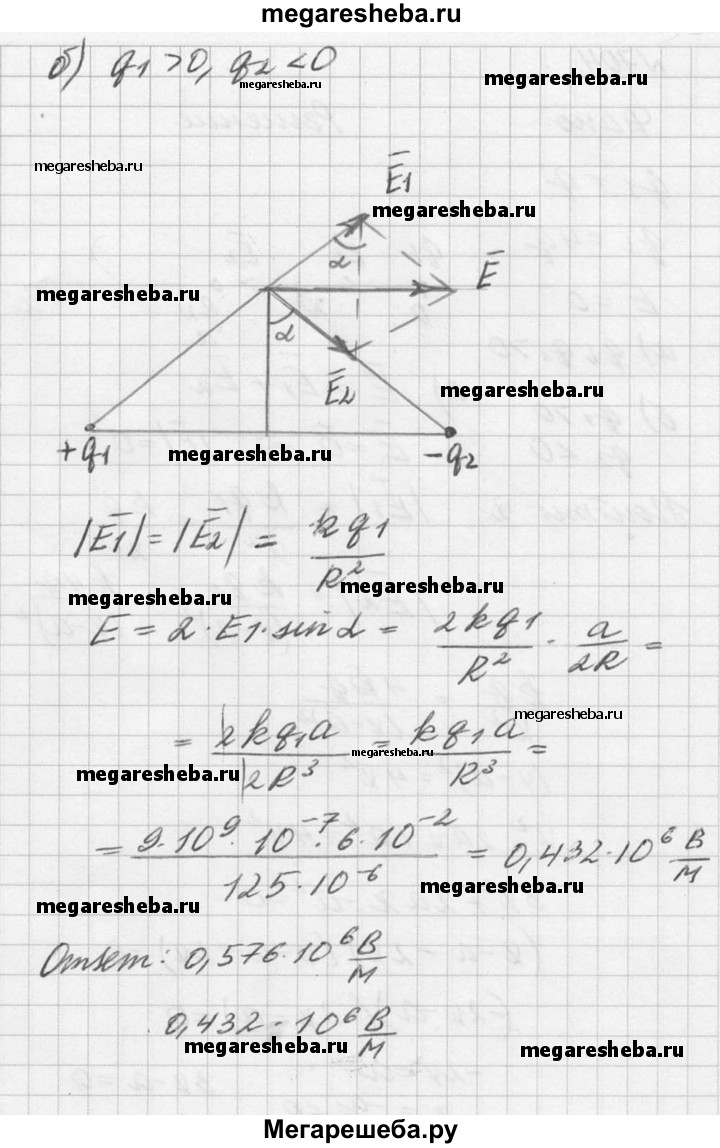 megaresheba.ru
б) q1 > 0, q2 < 0
megaresheba.ru
megaresheba.ru
megaresheba.ru
E̅1
megaresheba.ru
α
megaresheba.ru
E̅
α
E̅2
megaresheba.ru
+q1
megaresheba.ru
-q2
|E̅1| = |E̅2| = kq1/R²
megaresheba.ru
megaresheba.ru
E = 2·E1·sinα = 2kq1/R² · a/2R =
megaresheba.ru
= 2kq1a/2R³ = kq1a/R³ =
megaresheba.ru
megaresheba.ru
= 9·10⁹·10⁻⁷·6·10⁻²/125·10⁻⁶ = 0,432·10⁶ В/м
megaresheba.ru
megaresheba.ru
Ответ: 0,576·10⁶ В/м
0,432·10⁶ В/м
megaresheba.ru
megaresheba.ru
Мегарешеба.ру